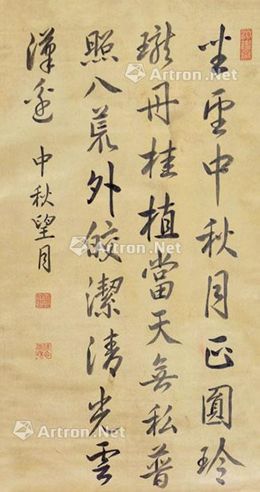 中秋月正圓玲
瓏丹桂植當天無私普
照八荒外皎潔清光雲
漢邊
中秋望月
Artron.Net
Artron.Net
Artron.Net
Artron.Net
Artron.Net
Artron.Net